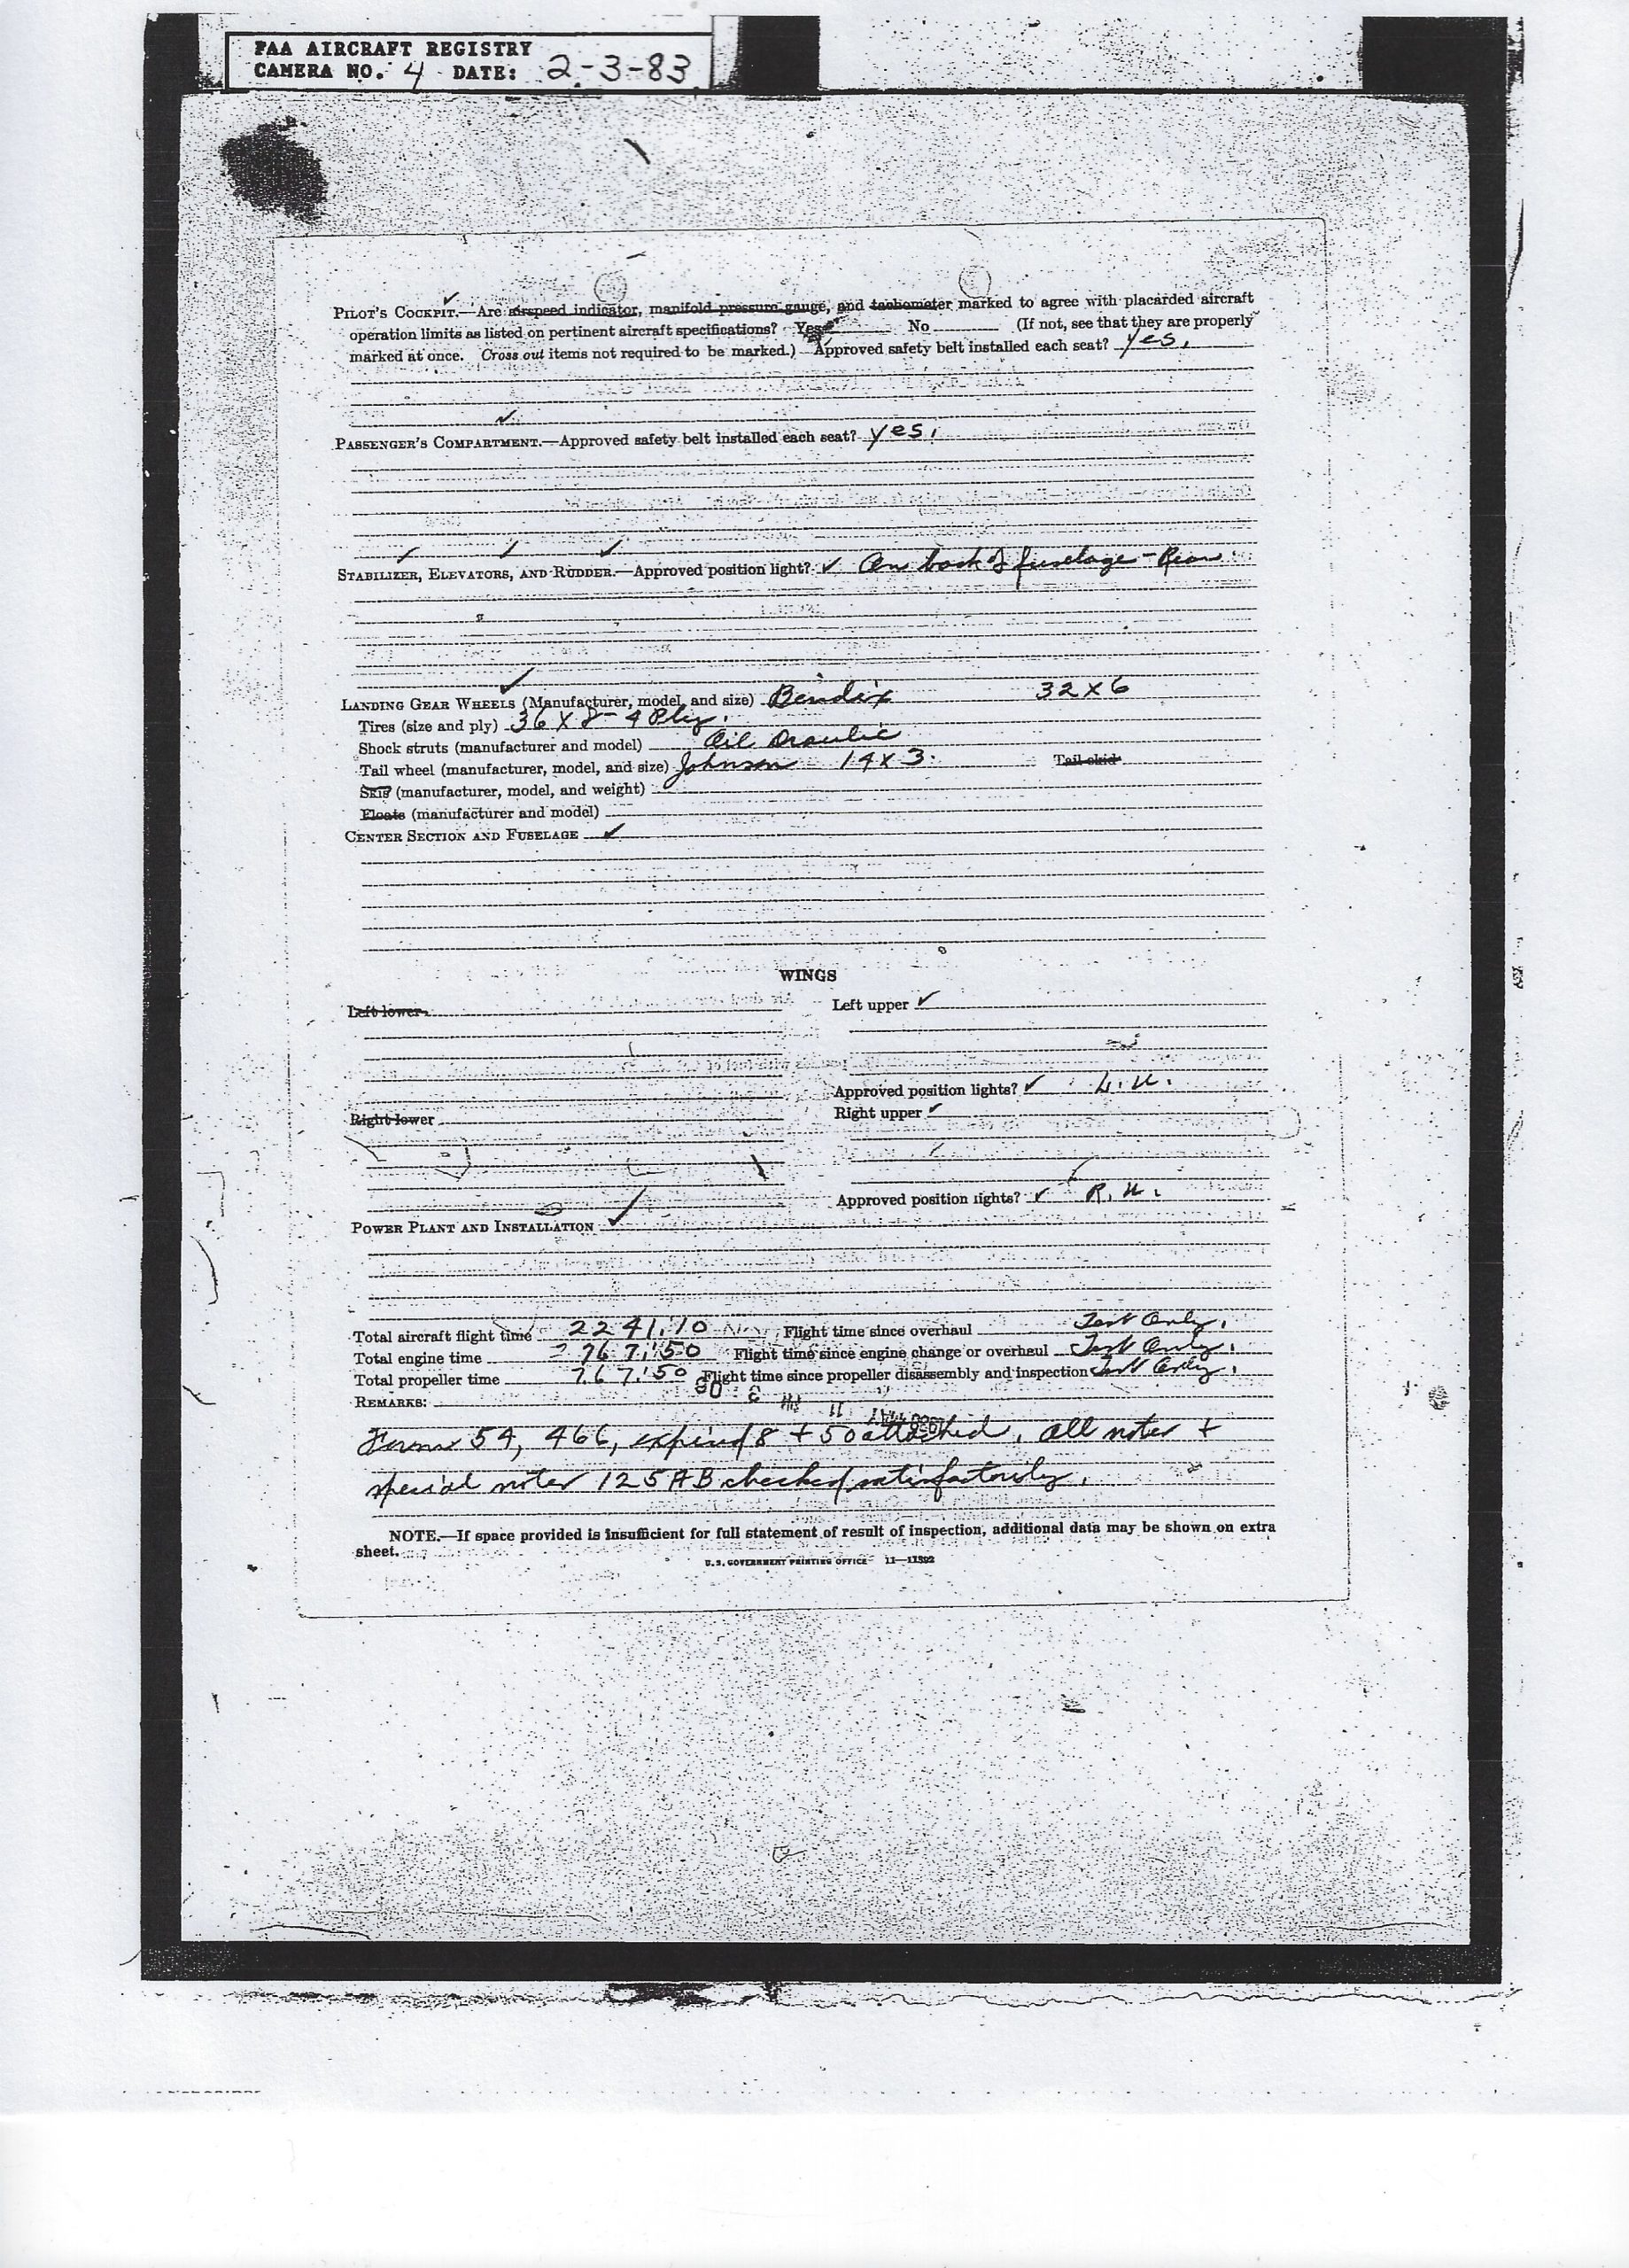 FAA AIRCRAFT REGISTRY
CAMERA NO. 4 DATE: 2-3-83
PILOT'S COCKPIT.—Are airspeed indicator, manifold pressure gauge, and tachometer marked to agree with placarded aircraft
operation limits as listed on pertinent aircraft specifications? Yes No (If not, see that they are properly
marked at once. Cross out items not required to be marked.) Approved safety belt installed each seat? Yes.
PASSENGER'S COMPARTMENT.—Approved safety belt installed each seat? Yes.
STABILIZER, ELEVATORS, AND RUDDER.—Approved position light? ✓ On back of fuselage - Rear.
LANDING GEAR WHEELS (Manufacturer, model, and size) Bendix 32 X 6
Tires (size and ply) 36 X 8 - 4 Ply.
Shock struts (manufacturer and model) Oil Draulic
Tail wheel (manufacturer, model, and size) Johnson 14 X 3. Tail skid
Skis (manufacturer, model, and weight)
Floats (manufacturer and model)
CENTER SECTION AND FUSELAGE ✓
WINGS
Left lower Left upper ✓
Approved position lights? ✓ L. U.
Right lower Right upper ✓
Approved position lights? ✓ R. U.
POWER PLANT AND INSTALLATION ✓
Total aircraft flight time 2241:10 Flight time since overhaul Test Only.
Total engine time 767:50 Flight time since engine change or overhaul Test Only.
Total propeller time 767:50 Flight time since propeller disassembly and inspection Test Only.
REMARKS:
Forms 54, 466, expired 8 + 50 attached. All notes +
special notes 125 AB checked satisfactorily.
NOTE.—If space provided is insufficient for full statement of result of inspection, additional data may be shown on extra
sheet.
U. S. GOVERNMENT PRINTING OFFICE 11—11892